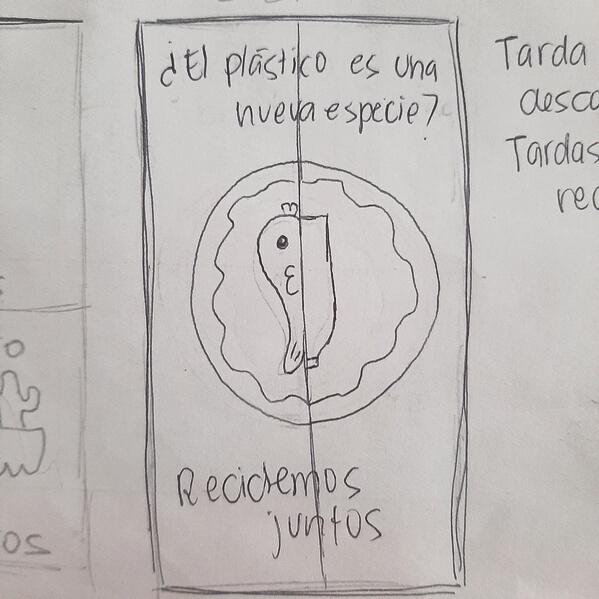 ¿El plástico es una
nueva especie?
Reciclemos
juntos
Tarda
Tardas